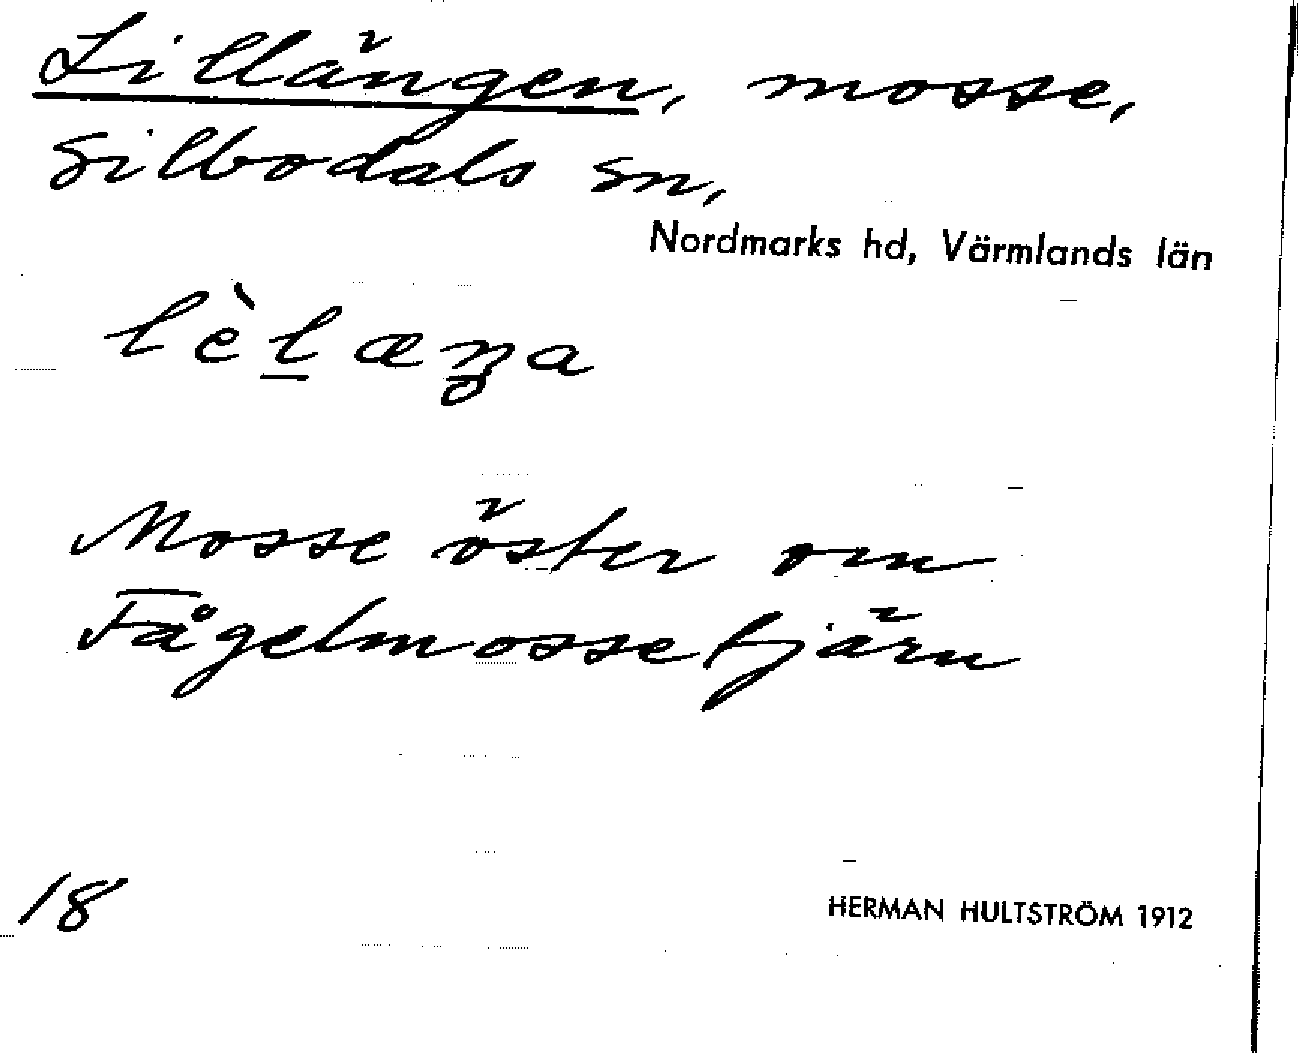 Lillängen, mosse,
Silbodals sn,
Nordmarks hd, Värmlands län
lèl̲æŋa
Mosse öster om
Fågelmossetjärn
18
HERMAN HULTSTRÖM 1912